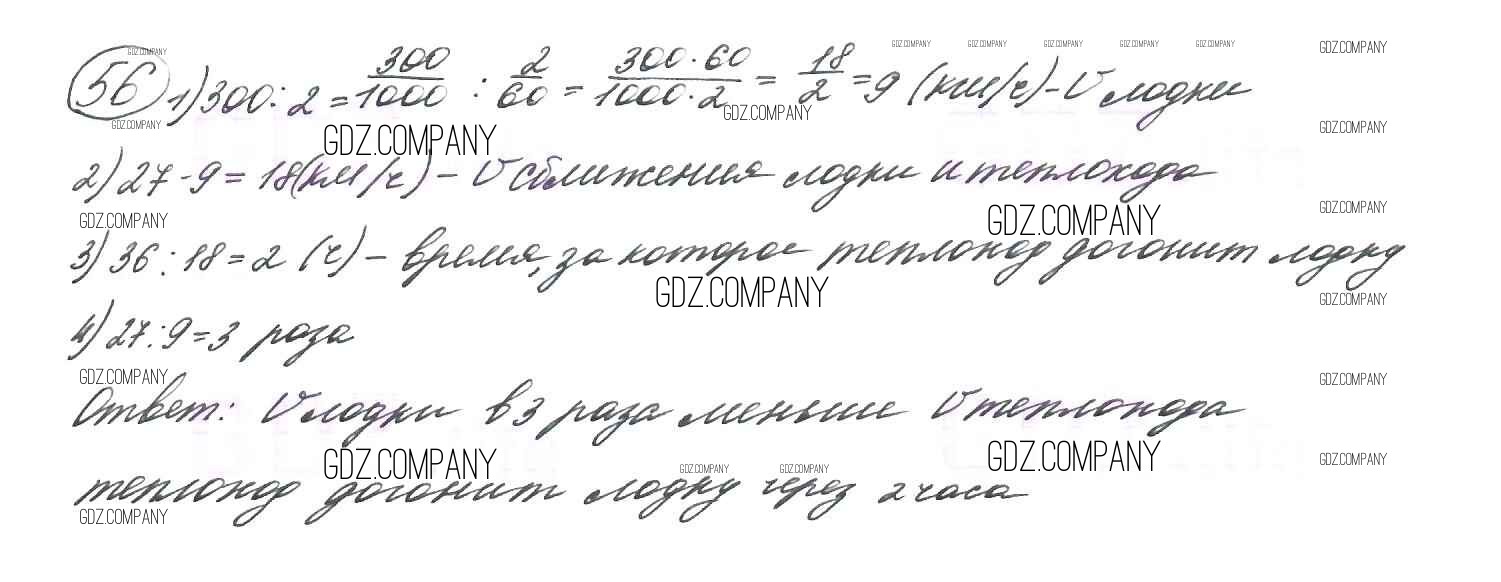 GDZ.COMPANY
GDZ.COMPANY GDZ.COMPANY GDZ.COMPANY GDZ.COMPANY GDZ.COMPANY GDZ.COMPANY
56 1) 300 : 2 = 300/1000 : 2/60 = 300·60/1000·2 = 18/2 = 9 (км/ч) – V лодки
GDZ.COMPANY GDZ.COMPANY GDZ.COMPANY GDZ.COMPANY
2) 27 - 9 = 18 (км/ч) – V сближения лодки и теплохода
GDZ.COMPANY GDZ.COMPANY GDZ.COMPANY
3) 36 : 18 = 2 (ч) – время, за которое теплоход догонит лодку
GDZ.COMPANY GDZ.COMPANY
4) 27 : 9 = 3 раза
GDZ.COMPANY GDZ.COMPANY
Ответ: V лодки в 3 раза меньше V теплохода
GDZ.COMPANY GDZ.COMPANY GDZ.COMPANY GDZ.COMPANY GDZ.COMPANY
теплоход догонит лодку через 2 часа
GDZ.COMPANY